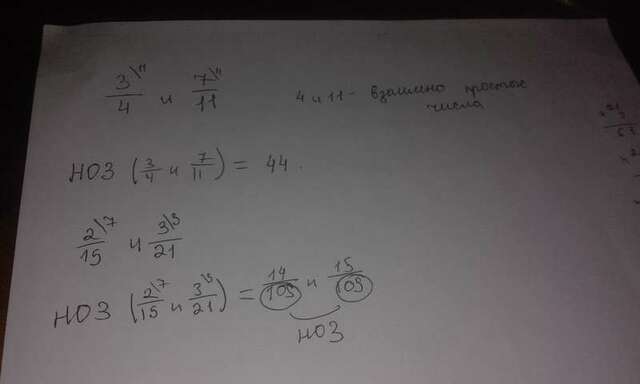 3\11/4 и 7\11/11 4 и 11 - взаимно простые числа
НОЗ (3/4 и 7/11) = 44.
2\7/15 и 3\3/21
НОЗ (2\7/15 и 3\5/21) = 14/105 и 15/105
НОЗ